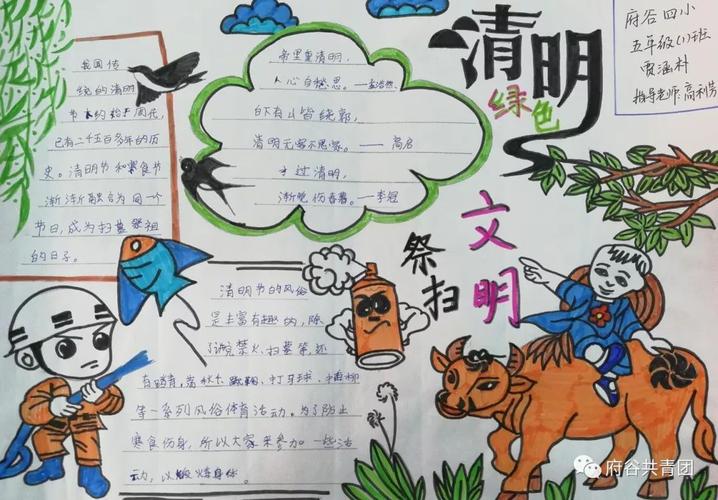 清明
绿色
文明
祭扫
府谷四小
五年级(1)班
贾涵村
指导老师:高利芳
我国传
统的清明
节大约始于周代,
已有二千五百多年的历
史。清明节和寒食节
渐渐融合为同一个
节日,成为扫墓祭祖
的日子。
帝里重清明,
人心自愁思。——孟浩然
白下有山皆绕郭,
清明无客不思家。——高启
才过清明,
渐觉伤春暮。——李冠
清明节的风俗
是丰富有趣的,除
了讲究禁火、扫墓等还
有踏青、荡秋千、蹴鞠、打马球、插柳
等一系列风俗体育活动。为了防止
寒食伤身,所以大家来参加一些活
动,以锻炼身体。
府谷共青团